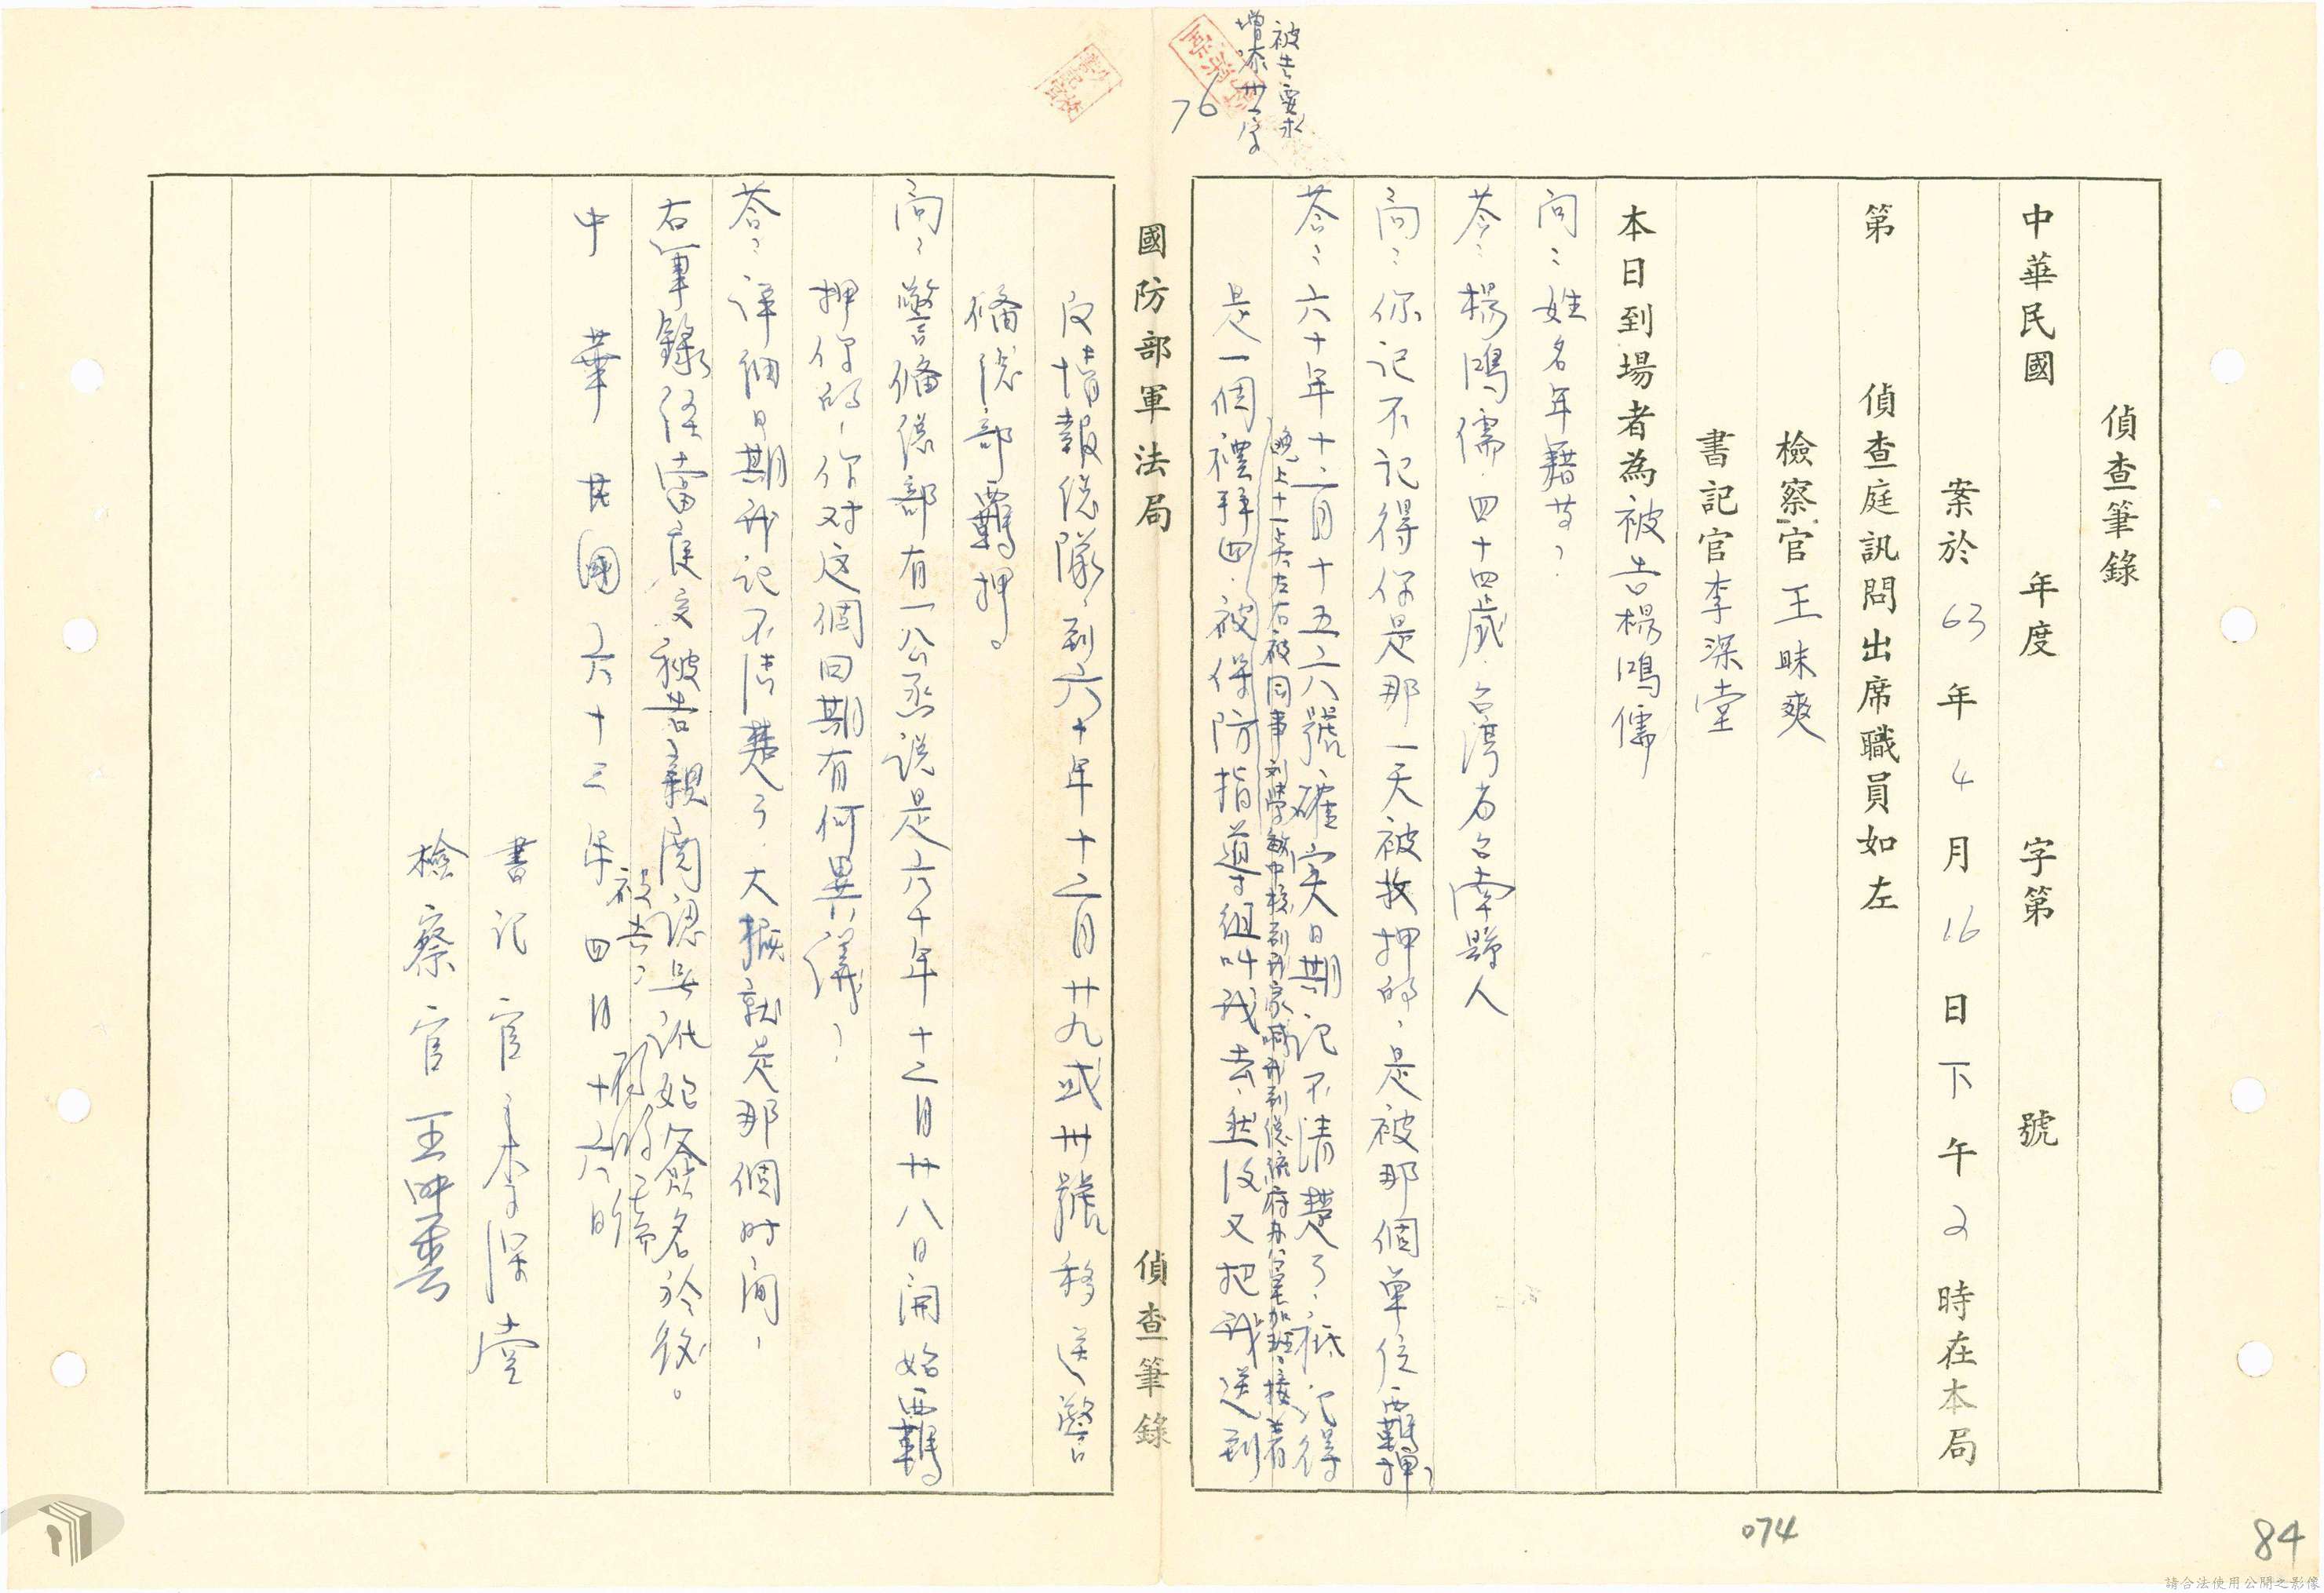 偵查筆錄
中華民國 年度 字第 號
案於63年4月16日下午2時在本局
第 偵查庭訊問出席職員如左
檢察官王昧爽
書記官李深堂
本日到場者為被告楊鴻儒
問：姓名年籍等？
答：楊鴻儒，四十四歲，台灣省台南縣人
問：你記不記得你是那一天被收押的，是被那個單位羈押？
答：六十年十二月十五、六號，確實日期記不清楚了，祇記得
晚上十一點左右被同事刘學敏中校到我家喊我到總統府辦公室加班，接着
是一個禮拜四，被保防指導組叫我去，然後又把我送到
被告要求
增添卅一字
76
國防部軍法局 偵查筆錄
反情報總隊，到六十年十二月廿九或卅號移送警
備總部羈押。
問：警備總部有一公函說是六十年十二月廿八日開始羈
押你的，你对這個日期有何異議？
答：詳細日期我記不清楚了，大概就是那個时間，
右筆錄經當庭交被告親閱認無訛始簽名於後。
被告：楊鴻儒
中華民國六十三年四月十六日
書記官李深堂
檢察官王昧爽
074
84
請合法使用公開之影像